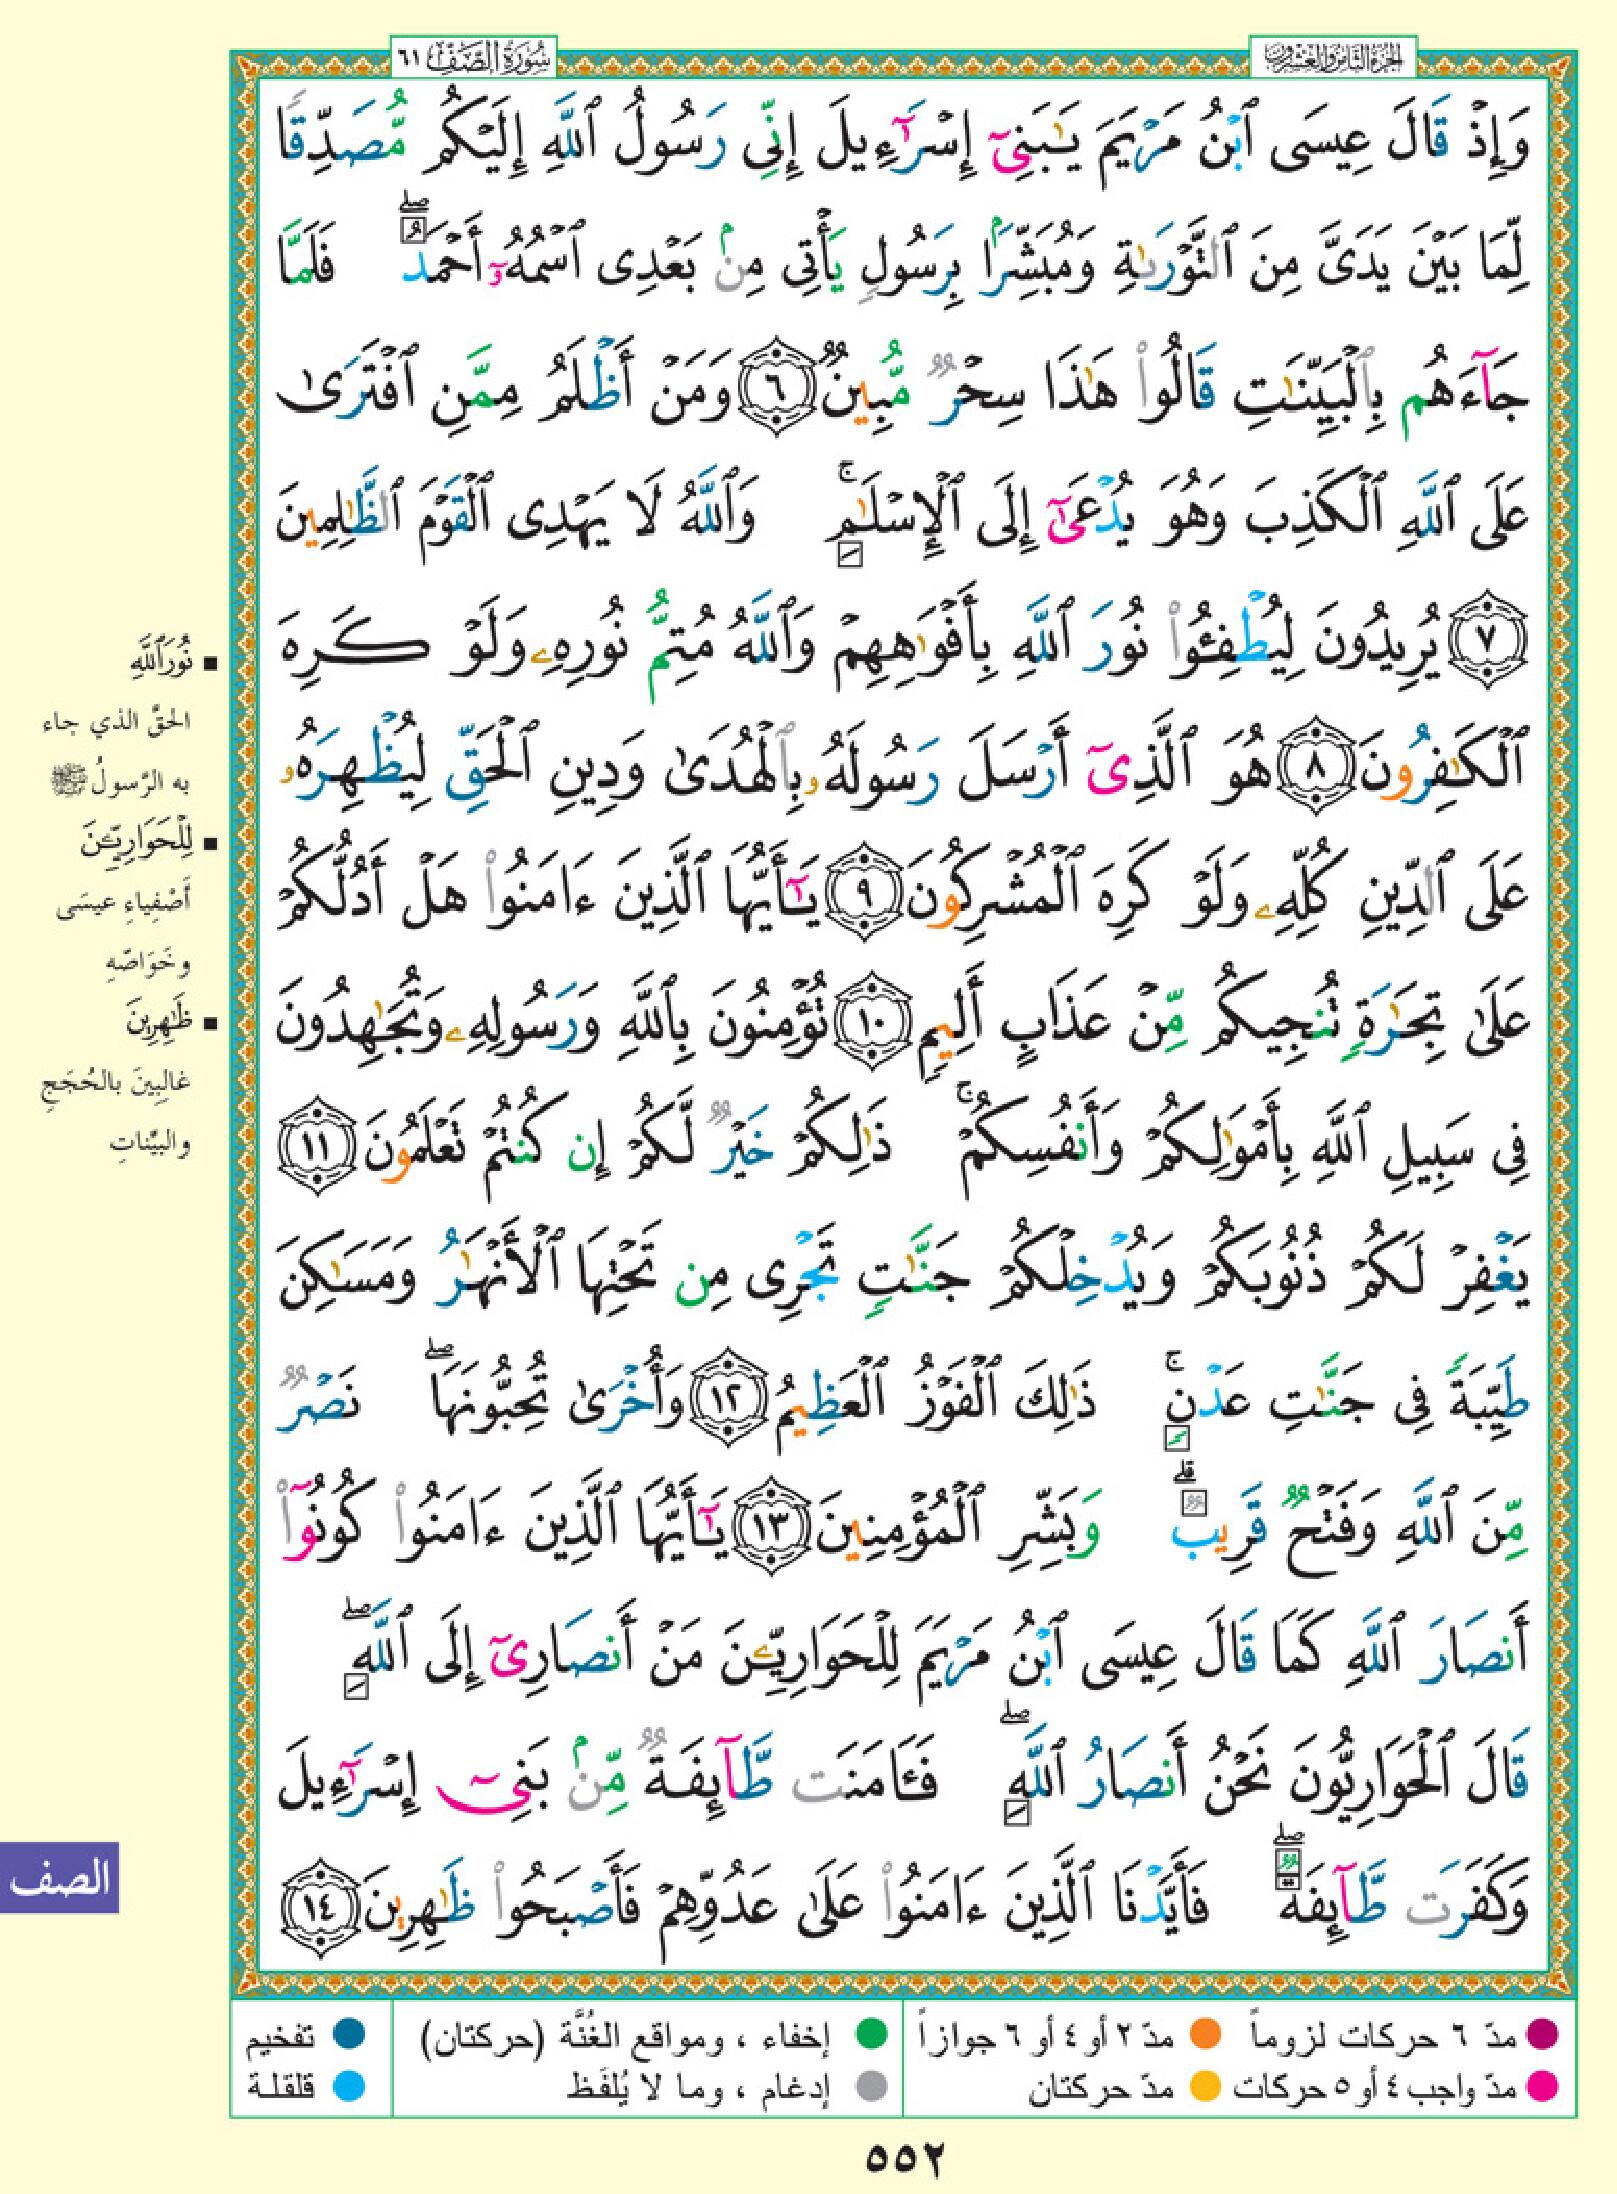 الجزء الثامن والعشرون
سورة الصف ٦١
وَإِذْ قَالَ عِيسَى ٱبْنُ مَرْيَمَ يَـٰبَنِىٓ إِسْرَٰٓءِيلَ إِنِّى رَسُولُ ٱللَّهِ إِلَيْكُم مُّصَدِّقًا
لِّمَا بَيْنَ يَدَىَّ مِنَ ٱلتَّوْرَىٰةِ وَمُبَشِّرًۢا بِرَسُولٍ يَأْتِى مِنۢ بَعْدِى ٱسْمُهُۥٓ أَحْمَدُ ۖ فَلَمَّا
جَآءَهُم بِٱلْبَيِّنَـٰتِ قَالُوا۟ هَـٰذَا سِحْرٌ مُّبِينٌ ٦ وَمَنْ أَظْلَمُ مِمَّنِ ٱفْتَرَىٰ
عَلَى ٱللَّهِ ٱلْكَذِبَ وَهُوَ يُدْعَىٰٓ إِلَى ٱلْإِسْلَـٰمِ ۚ وَٱللَّهُ لَا يَهْدِى ٱلْقَوْمَ ٱلظَّـٰلِمِينَ
٧ يُرِيدُونَ لِيُطْفِـُٔوا۟ نُورَ ٱللَّهِ بِأَفْوَٰهِهِمْ وَٱللَّهُ مُتِمُّ نُورِهِۦ وَلَوْ كَرِهَ
ٱلْكَـٰفِرُونَ ٨ هُوَ ٱلَّذِىٓ أَرْسَلَ رَسُولَهُۥ بِٱلْهُدَىٰ وَدِينِ ٱلْحَقِّ لِيُظْهِرَهُۥ
عَلَى ٱلدِّينِ كُلِّهِۦ وَلَوْ كَرِهَ ٱلْمُشْرِكُونَ ٩ يَـٰٓأَيُّهَا ٱلَّذِينَ ءَامَنُوا۟ هَلْ أَدُلُّكُمْ
عَلَىٰ تِجَـٰرَةٍ تُنجِيكُم مِّنْ عَذَابٍ أَلِيمٍ ١٠ تُؤْمِنُونَ بِٱللَّهِ وَرَسُولِهِۦ وَتُجَـٰهِدُونَ
فِى سَبِيلِ ٱللَّهِ بِأَمْوَٰلِكُمْ وَأَنفُسِكُمْ ۚ ذَٰلِكُمْ خَيْرٌ لَّكُمْ إِن كُنتُمْ تَعْلَمُونَ ١١
يَغْفِرْ لَكُمْ ذُنُوبَكُمْ وَيُدْخِلْكُمْ جَنَّـٰتٍ تَجْرِى مِن تَحْتِهَا ٱلْأَنْهَـٰرُ وَمَسَـٰكِنَ
طَيِّبَةً فِى جَنَّـٰتِ عَدْنٍ ۚ ذَٰلِكَ ٱلْفَوْزُ ٱلْعَظِيمُ ١٢ وَأُخْرَىٰ تُحِبُّونَهَا ۖ نَصْرٌ
مِّنَ ٱللَّهِ وَفَتْحٌ قَرِيبٌ ۗ وَبَشِّرِ ٱلْمُؤْمِنِينَ ١٣ يَـٰٓأَيُّهَا ٱلَّذِينَ ءَامَنُوا۟ كُونُوٓا۟
أَنصَارَ ٱللَّهِ كَمَا قَالَ عِيسَى ٱبْنُ مَرْيَمَ لِلْحَوَارِيِّـۧنَ مَنْ أَنصَارِىٓ إِلَى ٱللَّهِ ۖ
قَالَ ٱلْحَوَارِيُّونَ نَحْنُ أَنصَارُ ٱللَّهِ ۖ فَـَٔامَنَت طَّآئِفَةٌ مِّنۢ بَنِىٓ إِسْرَٰٓءِيلَ
وَكَفَرَت طَّآئِفَةٌ ۖ فَأَيَّدْنَا ٱلَّذِينَ ءَامَنُوا۟ عَلَىٰ عَدُوِّهِمْ فَأَصْبَحُوا۟ ظَـٰهِرِينَ ١٤
نُورَ ٱللَّهِ
الحقَّ الذي جاء
به الرَّسولُ ﷺ
لِلْحَوَارِيِّـۧنَ
أَصْفِياءِ عيسَى
وخَوَاصّهِ
ظَـٰهِرِينَ
غالِبِينَ بالحُجَجِ
والبيِّناتِ
الصف
مدّ ٦ حركات لزوماً مدّ ٢ أو ٤ أو ٦ جوازاً إخفاء ، ومواقع الغُنَّة (حركتان) تفخيم
مدّ واجب ٤ أو ٥ حركات مدّ حركتان إدغام ، وما لا يُلفَظ قلقلة
٥٥٢